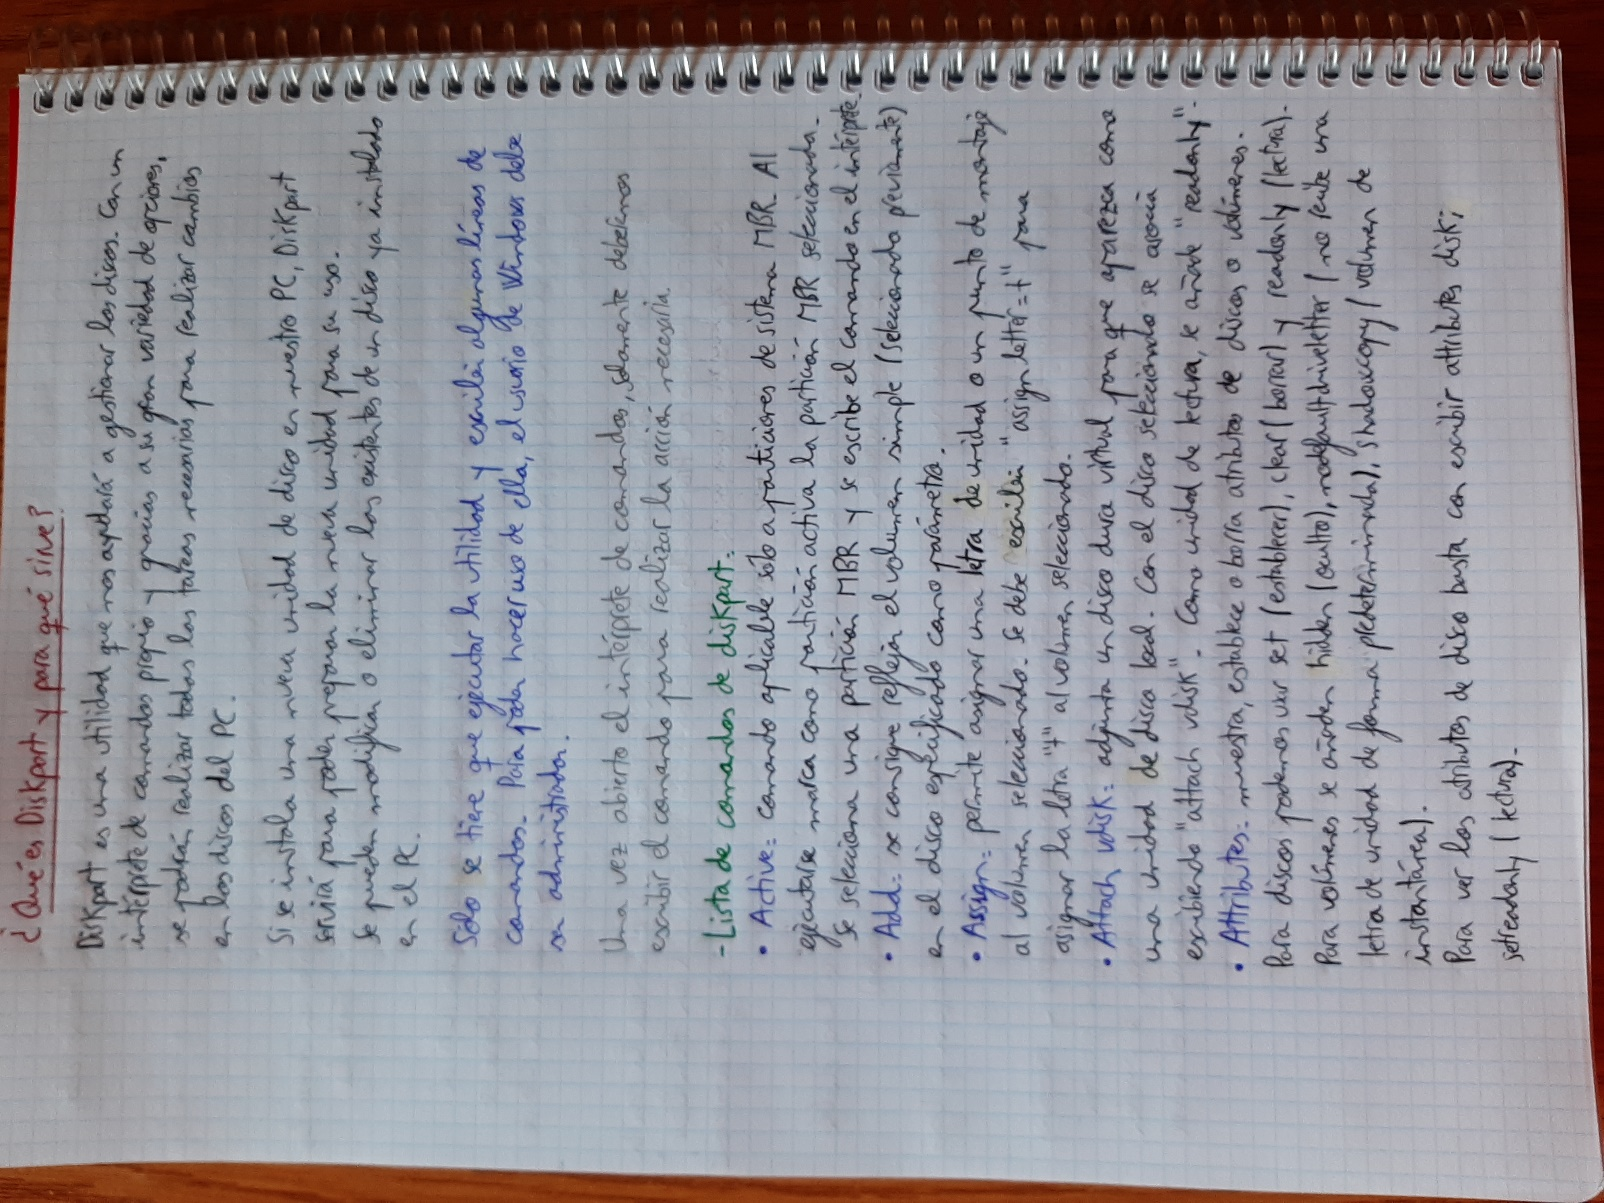 ¿Qué es Diskpart y para qué sirve?
Diskpart es una utilidad que nos ayudará a gestionar los discos. Con un
intérprete de comandos propio y gracias a su gran variedad de opciones,
se podrán realizar todas las tareas necesarias para realizar cambios
en los discos del PC.
Si se instala una nueva unidad de disco en nuestro PC, Diskpart
servirá para poder preparar la nueva unidad para su uso.
Se pueden modificar o eliminar las existentes de un disco ya instalado
en el PC.
Sólo se tiene que ejecutar la utilidad y escribir algunas líneas de
comandos. Para poder hacer uso de ella, el usuario de Windows debe
ser administrador.
Una vez abierto el intérprete de comandos, solamente debemos
escribir el comando para realizar la acción necesaria.
- Lista de comandos de diskpart:
• Active: comando aplicable sólo a particiones de sistema MBR. Al
ejecutarse marca como partición activa la partición MBR seleccionada.
Se selecciona una partición MBR y se escribe el comando en el intérprete.
• Add: se consigue reflejar el volumen simple (seleccionado previamente)
en el disco especificado como parámetro.
• Assign: permite asignar una letra de unidad o un punto de montaje
al volumen seleccionado. Se debe escribir "assign letter=t" para
asignar la letra "t" al volumen seleccionado.
• Attach vdisk: adjunta un disco duro virtual para que aparezca como
una unidad de disco local. Con el disco seleccionado se asocia
escribiendo "attach vdisk". Como unidad de lectura, se añade "readonly".
• Attributes: muestra, establece o borra atributos de discos o volúmenes.
Para discos podemos usar set (establecer), clear (borrar) y readonly (lectura).
Para volúmenes se añaden hidden (oculto), nodefaultdriveletter (no recibe una
letra de unidad de forma predeterminada), shadowcopy (volumen de
instantánea).
Para ver los atributos de disco basta con escribir attributes disk;
set readonly (lectura).